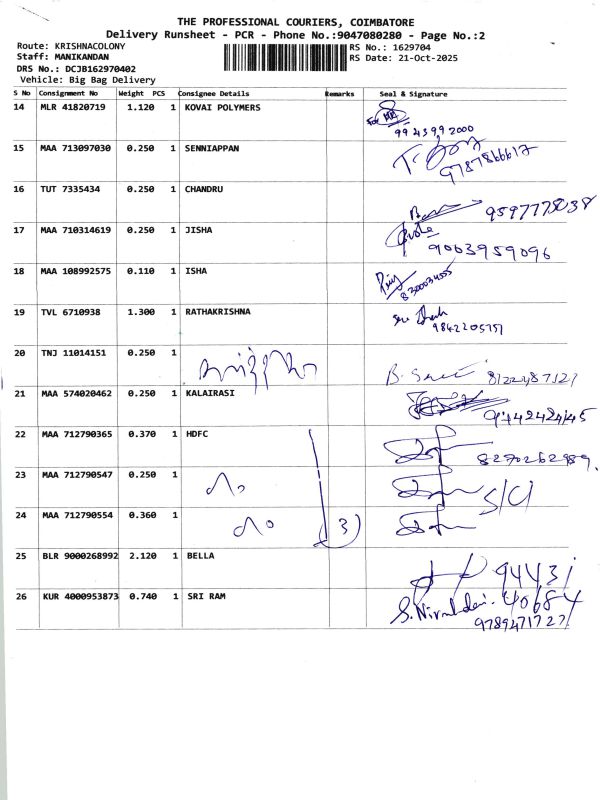 THE PROFESSIONAL COURIERS, COIMBATORE
Delivery Runsheet - PCR - Phone No.:9047080280 - Page No.:2
Route: KRISHNACOLONY
RS No.: 1629704
Staff: MANIKANDAN
RS Date: 21-Oct-2025
DRS No.: DCJB162970402
Vehicle: Big Bag Delivery
S No Consignment No Weight PCS Consignee Details Remarks Seal & Signature
14 MLR 41820719 1.120 1 KOVAI POLYMERS
9943992000
15 MAA 713097030 0.250 1 SENNIAPPAN
9787866617
16 TUT 7335434 0.250 1 CHANDRU
9597778038
17 MAA 710314619 0.250 1 JISHA
9003959096
18 MAA 108992575 0.110 1 ISHA
19 TVL 6710938 1.300 1 RATHAKRISHNA
9842205751
20 TNJ 11014151 0.250 1
8122487127
21 MAA 574020462 0.250 1 KALAIRASI
22 MAA 712790365 0.370 1 HDFC
8270262989
23 MAA 712790547 0.250 1
24 MAA 712790554 0.360 1
3)
25 BLR 9000268992 2.120 1 BELLA
94431
40684
26 KUR 4000953873 0.740 1 SRI RAM
9789471727